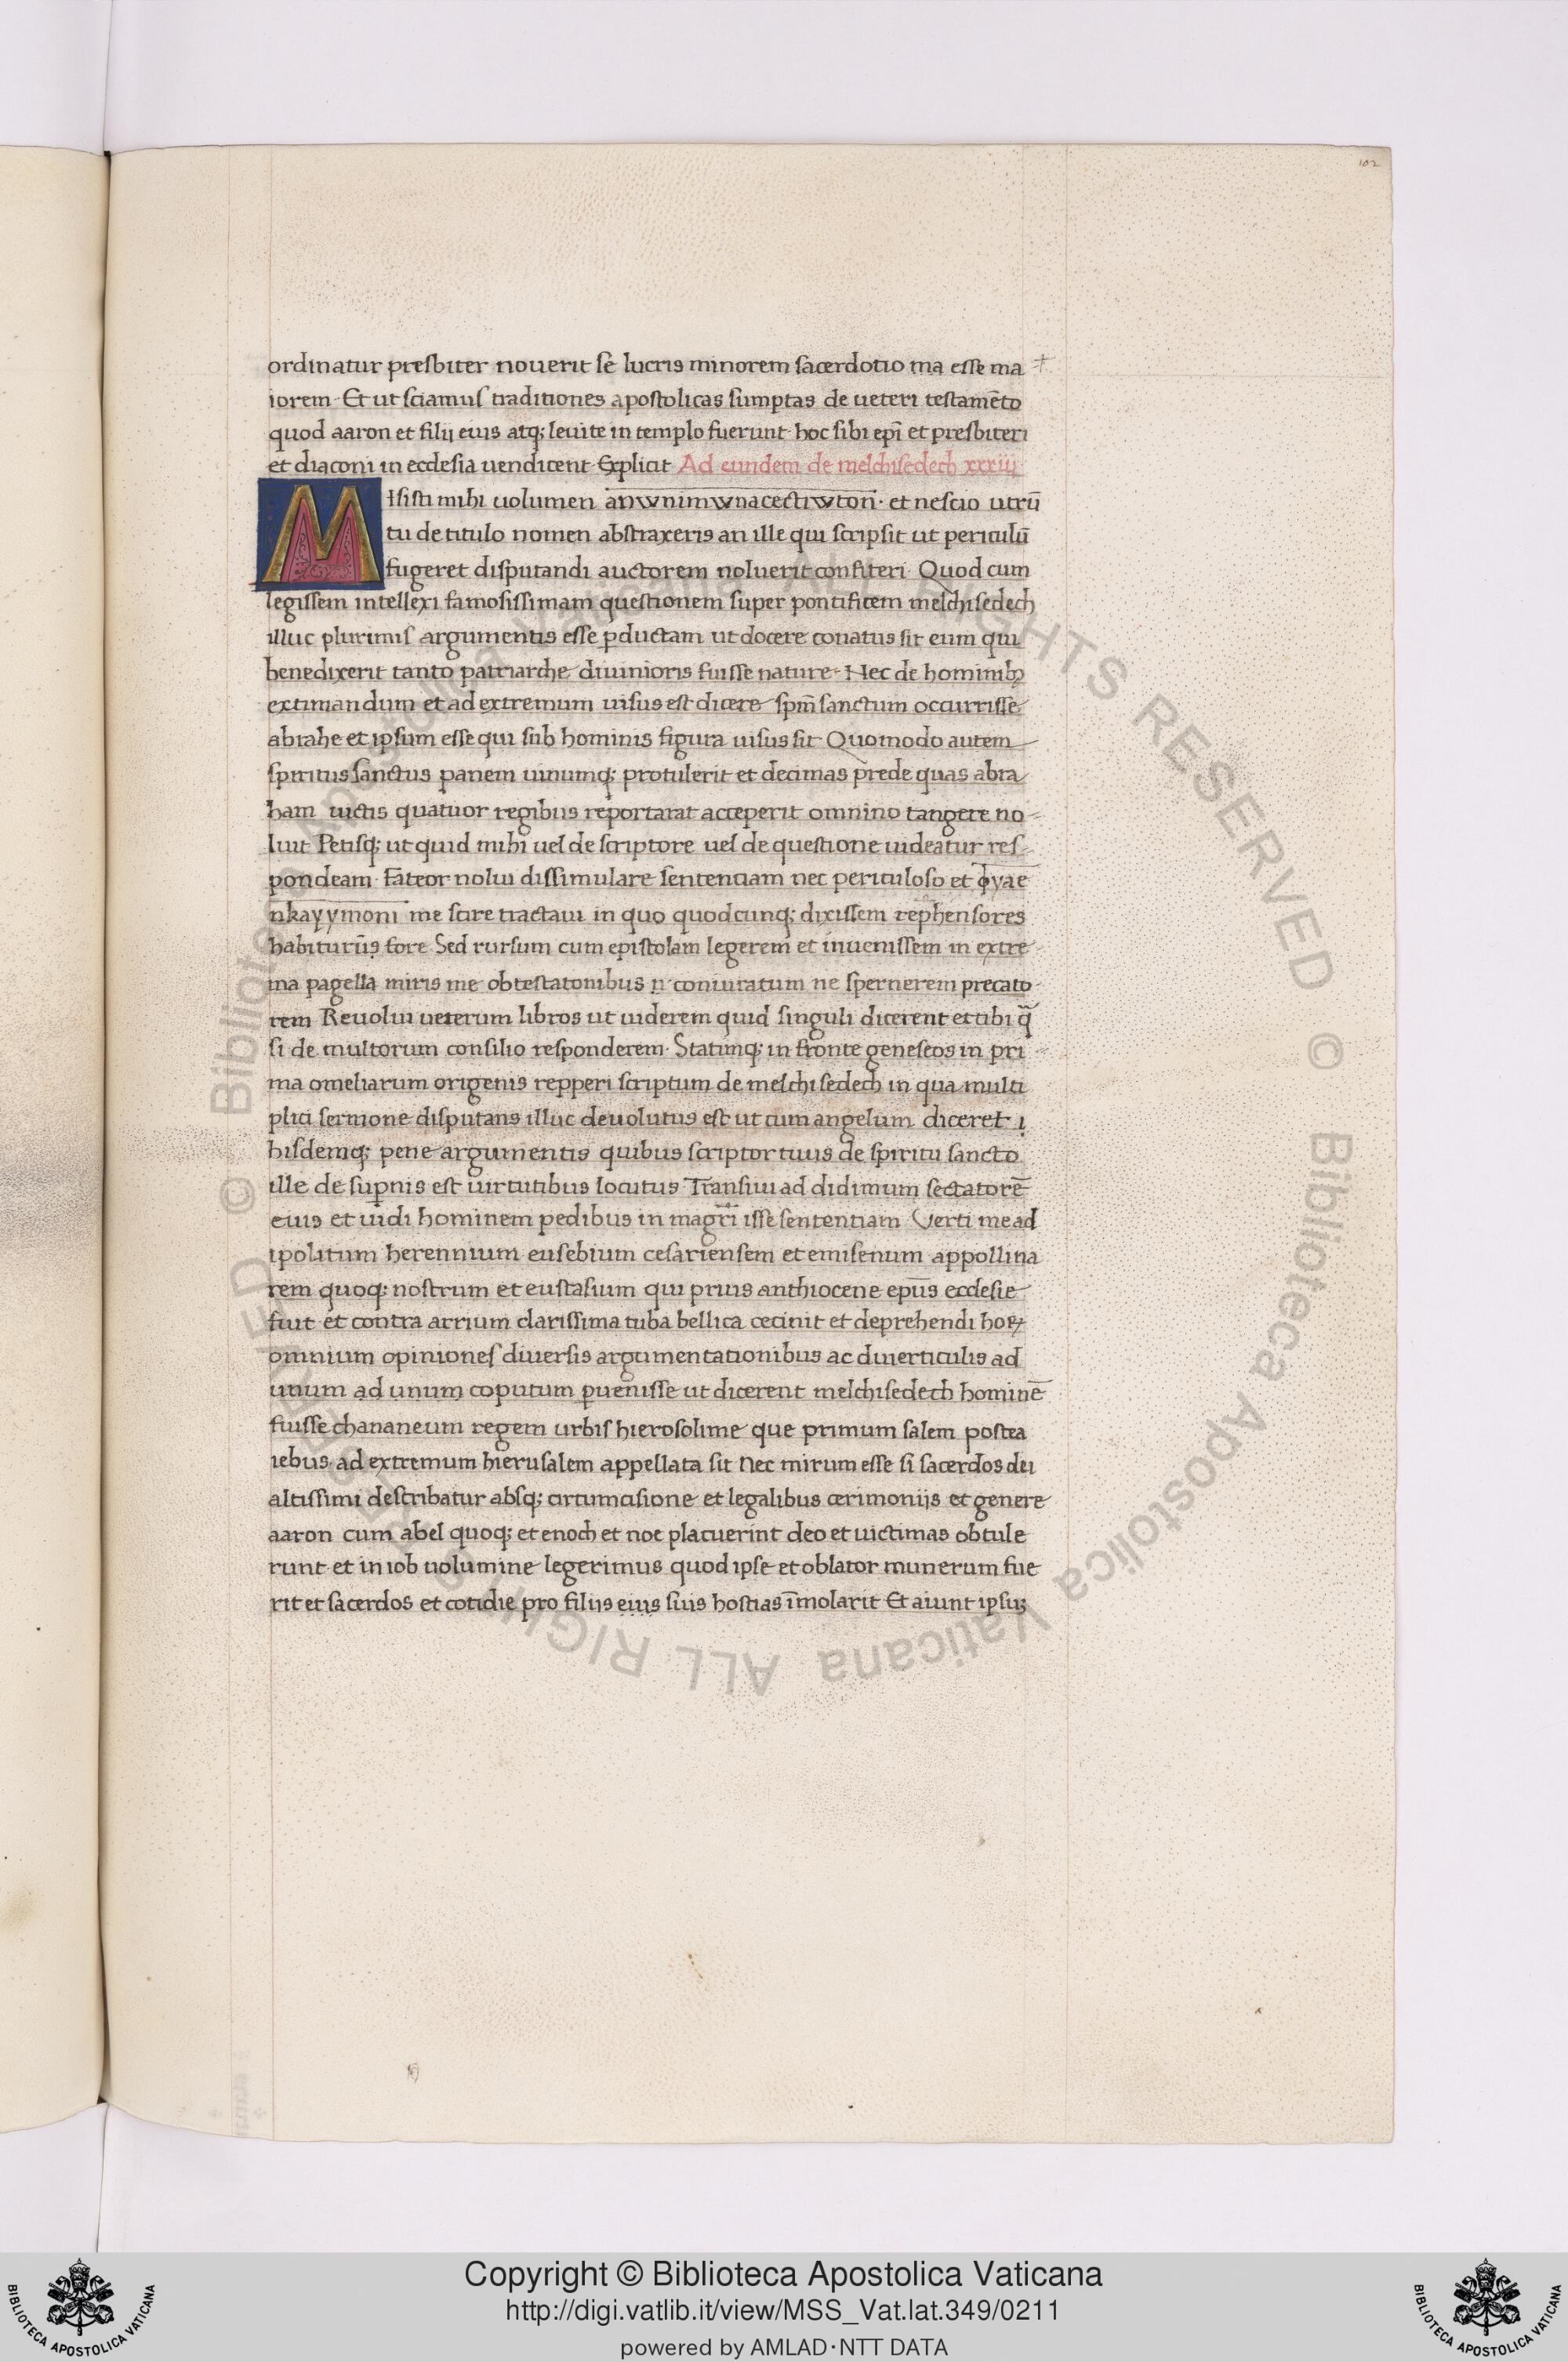 102
ordinatur presbiter noverit se lucris minorem sacerdotio ma esse ma
iorem. Et ut sciamus traditiones apostolicas sumptas de ueteri testamēto
quod aaron et filij euis atq; leuite in templo fuerunt hoc sibi epī et presbiteri
et diaconi in ecclesia uendicent Explicit Ad eundem de melchisedech xxxiij
MIsisti mihi uolumen anwnimwnacectiwton· et nescio utrū
tu de titulo nomen abstraxeris an ille qui scripsit ut periculū
fugeret disputandi auctorem noluerit confiteri. Quod cum
legissem intellexi famosissimam questionem super pontificem melchisedech
illuc plurimis argumentis esse pductam ut docere conatus sit eum qui
benedixerit tanto patriarche diuinioris fuisse nature. Nec de hominibȝ
extimandum et ad extremum uisus est dicere spm̄ sanctum occurrisse
abrahe et ipsum esse qui sub hominis figura uisus sit Quomodo autem
spiritus sanctus panem uinumq; protulerit et decimas prede quas abra
ham uictis quatuor regibus reportarat acceperit omnino tangere no
luit Petisq; ut quid mihi uel de scriptore uel de questione uideatur res
pondeam. Fateor nolui dissimulare sententiam nec periculoso et ϕyae
nkayymoni me scire tractaui in quo quodcunq; dixissem rephensores
habiturūs fore Sed rursum cum epistolam legerem et inuenissem in extre
ma pagella miris me obtestatonibus n coniuratum ne spernerem precato
rem Reuolui ueterum libros ut uiderem quid singuli dicerent et tibi q̄
si de multorum consilio responderem. Statimq; in fronte geneseos in pri
ma omeliarum origenis repperi scriptum de melchisedech in qua multi
plici sermone disputans illuc deuolutus est ut cum angelum diceret i
hisdemq; pene argumentis quibus scriptor tuus de spiritu sancto
ille de supnis est uirtutibus locutus Transiui ad didimum sectatorē
euis et uidi hominem pedibus in magr̄i isse sententiam Verti me ad
ipolitum herennium eusebium cesariensem et emisenum appollina
rem quoq; nostrum et eustasium qui prius anthiocene epūs ecclesie
fuit et contra arrium clarissima tuba bellica cecinit et deprehendi hoꝝ
omnium opiniones diuersis argumentationibus ac diuerticulis ad
unum ad unum coputum puenisse ut dicerent melchisedech hominē
fuisse chananeum regem urbis hierosolime que primum salem postea
iebus ad extremum hierusalem appellata sit Nec mirum esse si sacerdos dei
altissimi describatur absq; circumcisione et legalibus cerimonijs et genere
aaron cum abel quoq; et enoch et noe placuerint deo et uictimas obtule
runt et in iob uolumine legerimus quod ipse et oblator munerum fue
rit et sacerdos et cotidie pro filijs euis suis hostias īmolarit Et aiunt ipsuȝ
© Biblioteca Apostolica Vaticana ALL RIGHTS RESERVED © Biblioteca Apostolica Vaticana ALL RIGHTS RESERVED
Copyright © Biblioteca Apostolica Vaticana
http://digi.vatlib.it/view/MSS_Vat.lat.349/0211
powered by AMLAD·NTT DATA
BIBLIOTECA APOSTOLICA VATICANA
BIBLIOTECA APOSTOLICA VATICANA